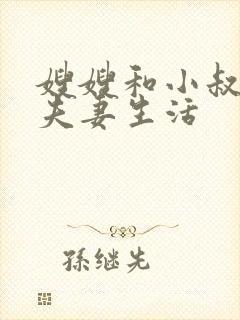 嫂嫂和小叔
夫妻生活
孫继先